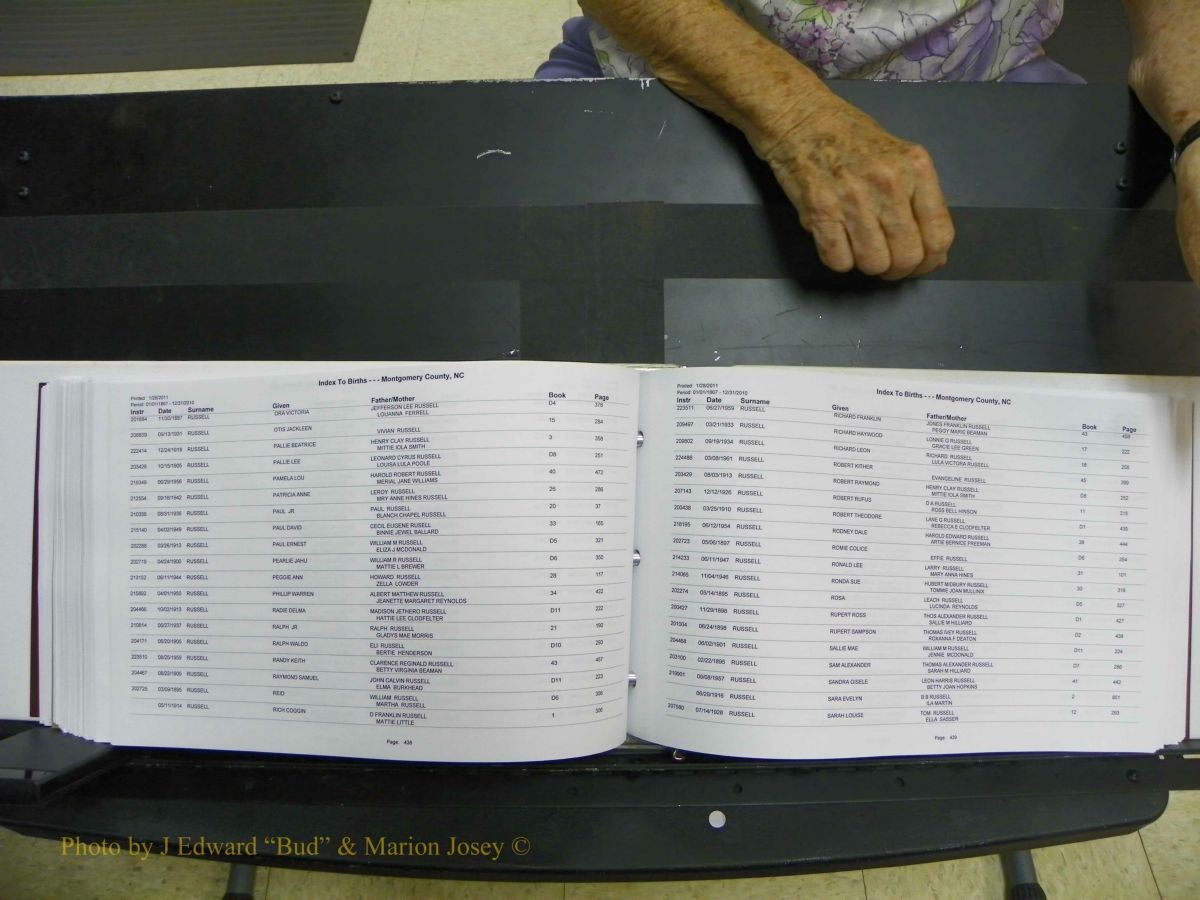 Index To Births - - - Montgomery County, NC
Printed: 1/28/2011
Period: 01/01/1867 - 12/31/2010
Instr Date Surname Given Father/Mother Book Page
201884 11/30/1887 RUSSELL ORA VICTORIA JEFFERSON LEE RUSSELL D4 378
LOUANNA FERRELL
208839 09/13/1931 RUSSELL OTIS JACKLEEN 15 284
VIVIAN RUSSELL
222414 12/24/1919 RUSSELL PALLIE BEATRICE HENRY CLAY RUSSELL 3 358
MITTIE IOLA SMITH
203426 10/15/1905 RUSSELL PALLIE LEE LEONARD CYRUS RUSSELL D8 251
LOUISA LULA POOLE
219349 06/29/1956 RUSSELL PAMELA LOU HAROLD ROBERT RUSSELL 40 472
MERIAL JANE WILLIAMS
212554 09/16/1942 RUSSELL PATRICIA ANNE LEROY RUSSELL 26 286
MRY ANNE HINES RUSSELL
210358 08/31/1936 RUSSELL PAUL JR PAUL RUSSELL 20 37
BLANCH CHAPEL RUSSELL
215140 04/02/1949 RUSSELL PAUL DAVID CECIL EUGENE RUSSELL 33 165
BINNIE JEWEL BALLARD
202288 03/26/1913 RUSSELL PAUL ERNEST WILLIAM M RUSSELL D5 321
ELIZA J MCDONALD
202719 04/24/1900 RUSSELL PEARLIE JAHU WILLIAM R RUSSELL D6 350
MATTIE L BREWER
213152 06/11/1944 RUSSELL PEGGIE ANN HOWARD RUSSELL 28 117
ZELLA LOWDER
215892 04/01/1950 RUSSELL PHILLIP WARREN ALBERT MATTHEW RUSSELL 34 422
JEANETTE MARGARET REYNOLDS
204466 10/02/1913 RUSSELL RADIE DELMA MADISON JETHERO RUSSELL D11 222
HATTIE LEE CLODFELTER
210814 09/27/1937 RUSSELL RALPH JR RALPH RUSSELL 21 190
GLADYS MAE MORRIS
204171 05/20/1905 RUSSELL RALPH WALDO ELI RUSSELL D10 290
BERTIE HENDERSON
223510 08/25/1959 RUSSELL RANDY KEITH CLARENCE REGINALD RUSSELL 43 457
BETTY VIRGINIA BEAMAN
204467 08/22/1909 RUSSELL RAYMOND SAMUEL JOHN CALVIN RUSSELL D11 223
ELMA BURKHEAD
202725 03/09/1895 RUSSELL REID WILLIAM RUSSELL D6 356
MARTHA RUSSELL
05/11/1914 RUSSELL RICH COGGIN D FRANKLIN RUSSELL 1 300
MATTIE LITTLE
Page: 438
Index To Births - - - Montgomery County, NC
Printed: 1/28/2011
Period: 01/01/1867 - 12/31/2010
Instr Date Surname Given Father/Mother Book Page
223511 06/27/1959 RUSSELL RICHARD FRANKLIN JONES FRANKLIN RUSSELL 43 458
PEGGY MARIE BEAMAN
209497 03/21/1933 RUSSELL RICHARD HAYWOOD LONNIE O RUSSELL 17 222
GRACIE LEE GREEN
209802 09/19/1934 RUSSELL RICHARD LEON RICHARD RUSSELL 18 208
LULA VICTORIA RUSSELL
224488 03/08/1961 RUSSELL ROBERT KITHER 45 399
EVANGELINE RUSSELL
203429 08/03/1913 RUSSELL ROBERT RAYMOND HENRY CLAY RUSSELL D8 252
MITTIE IOLA SMITH
207143 12/12/1926 RUSSELL ROBERT RUFUS D A RUSSELL 11 215
ROSS BELL HINSON
200438 03/25/1910 RUSSELL ROBERT THEODORE LANE G RUSSELL D1 435
REBECCA E CLODFELTER
218195 06/12/1954 RUSSELL RODNEY DALE HAROLD EDWARD RUSSELL 38 444
ARTIE BERNICE FREEMAN
202723 05/06/1897 RUSSELL ROMIE COLICE D6 354
EFFIE RUSSELL
214233 06/11/1947 RUSSELL RONALD LEE LARRY RUSSELL 31 101
MARY ANNA HINES
214065 11/04/1946 RUSSELL RONDA SUE HUBERT MIDBURY RUSSELL 30 319
TOMMIE JOAN MULLINIX
202274 05/14/1895 RUSSELL ROSA LEACH RUSSELL D5 327
LUCINDA REYNOLDS
200427 11/29/1898 RUSSELL RUPERT ROSS THOS ALEXANDER RUSSELL D1 427
SALLIE M HILLIARD
201004 06/24/1898 RUSSELL RUPERT SAMPSON THOMAS IVEY RUSSELL D2 438
ROXANNA F DEATON
204468 06/02/1901 RUSSELL SALLIE MAE WILLIAM M RUSSELL D11 224
JENNIE MCDONALD
203100 02/22/1895 RUSSELL SAM ALEXANDER THOMAS ALEXANDER RUSSELL D7 286
SARAH M HILLIARD
219901 09/08/1957 RUSSELL SANDRA GISELE LEON HARRIS RUSSELL 41 443
BETTY JOAN HOPKINS
06/29/1916 RUSSELL SARA EVELYN B B RUSSELL 2 801
ILA MARTIN
207580 07/14/1928 RUSSELL SARAH LOUISE TOM RUSSELL 12 293
ELLA SASSER
Page: 439
Photo by J Edward “Bud” & Marion Josey ©